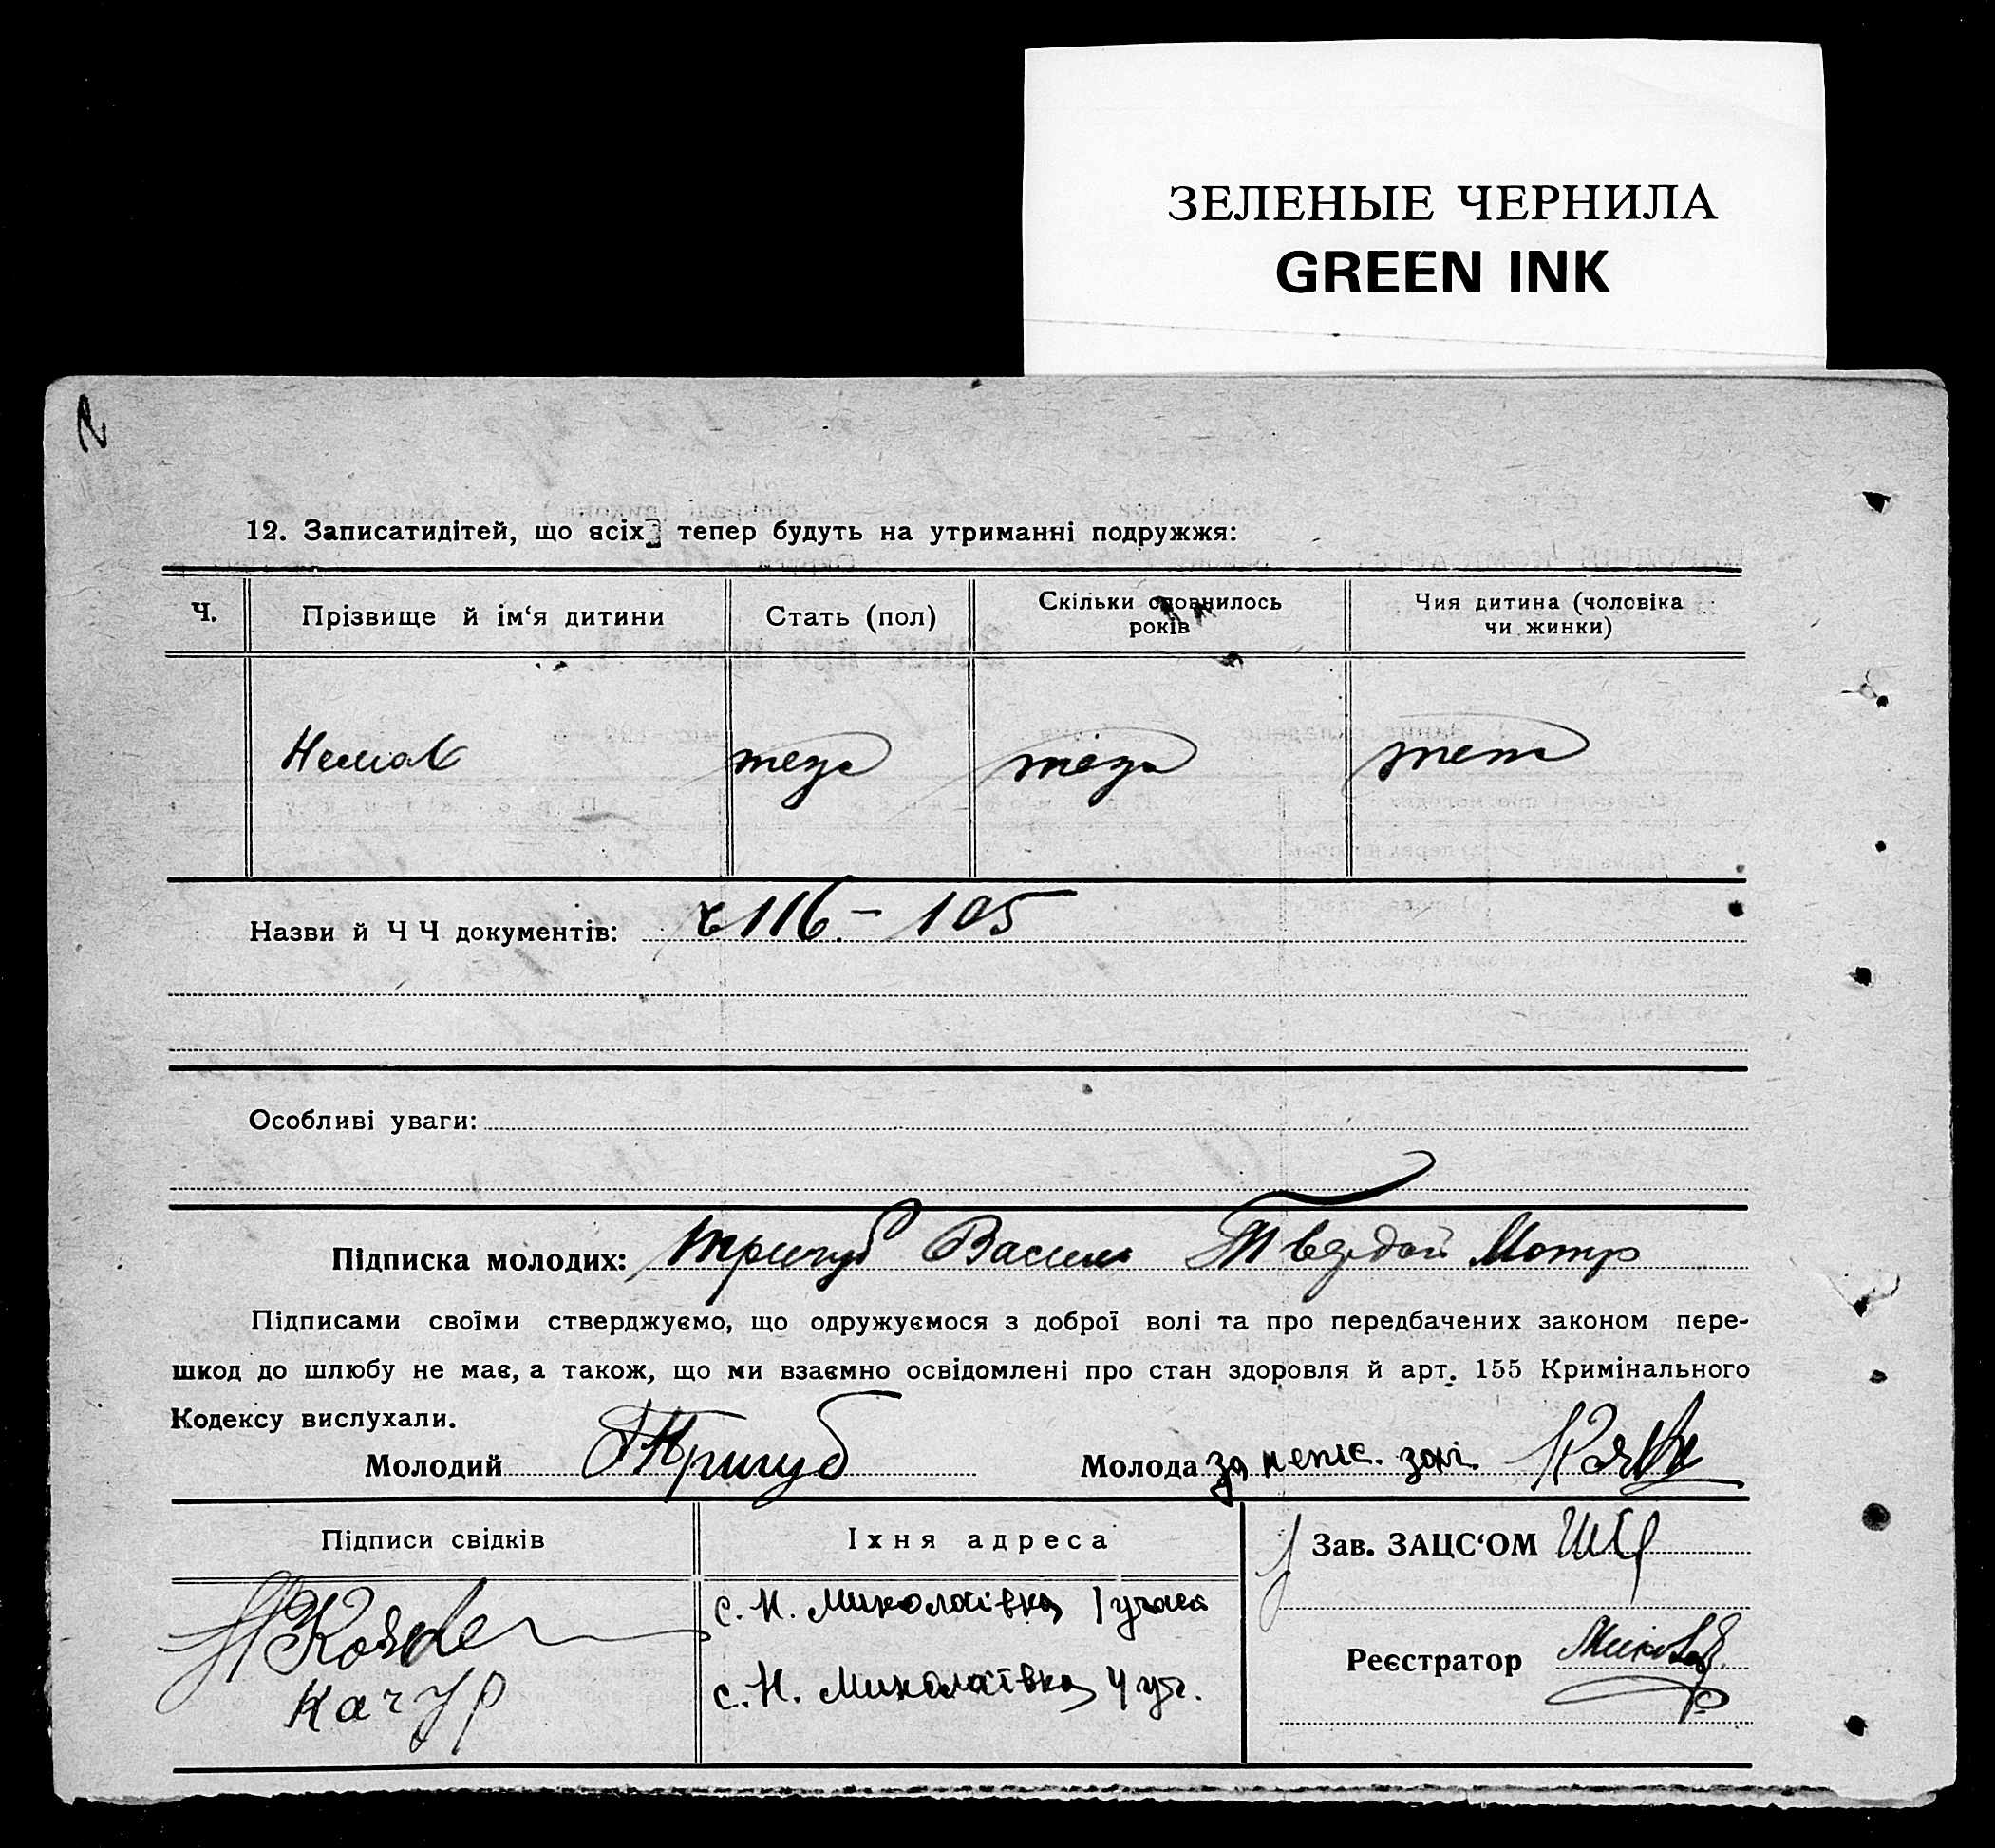 ЗЕЛЕНЫЕ ЧЕРНИЛА
GREEN INK
12. Записатидітей, що всіх тепер будуть на утриманні подружжя:
Ч. Прізвище й ім‘я дитини Стать (пол) Скільки сповнилось років Чия дитина (чоловіка чи жинки)
Немає
Назви й Ч Ч документів: ч 116 – 105
Особливі уваги:
Підписка молодих: Тригуб Василь Мотр
Підписами своїми стверджуємо, що одружуємося з доброї волі та про передбачених законом пере-
шкод до шлюбу не має, а також, що ми взаємно освідомлені про стан здоровля й арт. 155 Кримінального
Кодексу вислухали.
Молодий Тригуб Молода за непис.
Підписи свідків Їхня адреса Зав. ЗАЦС‘ОМ
с. Н. Миколаївка 1
Реєстратор
Качур с. Н. Миколаївка 4 уч.